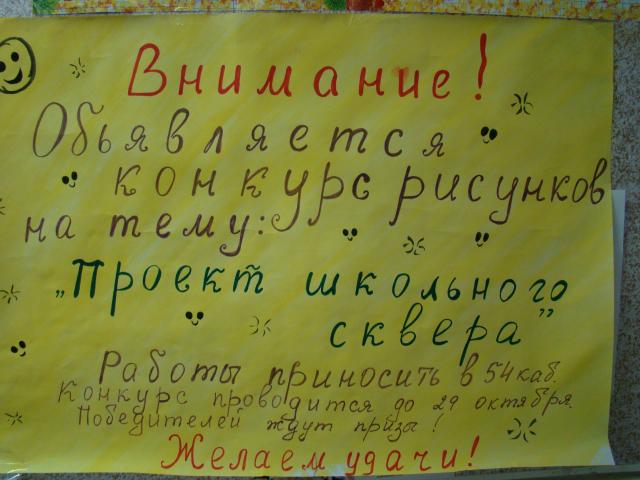 Внимание!
Обьявляется
конкурс рисунков
на тему:
„Проект школьного
сквера”
Работы приносить в 54 каб.
Конкурс проводится до 29 октября.
Победителей ждут призы!
Желаем удачи!